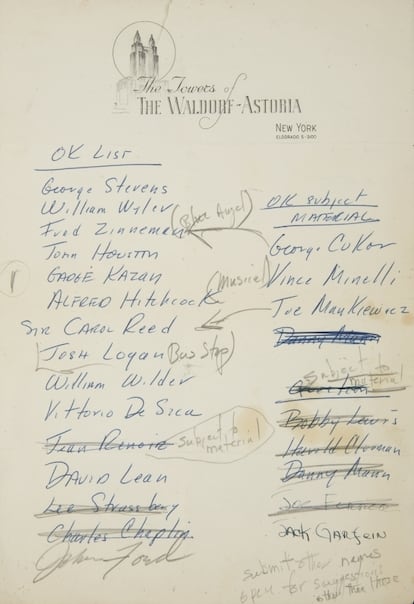 The Towers of
THE WALDORF-ASTORIA
NEW YORK
ELDORADO 5-3100
OK LIST
George Stevens
William Wyler (Blue Angel)
Fred Zinnemann
John Houston
GADGE KAZAN
ALFRED HitchcocK
SIR CAROL Reed
JOSH LOGAN (Bus Stop)
William Wilder
Vittorio De Sica
Jean Renoir - subject to material
DAVID Lean
Lee Strassberg
Charles Chaplin
John Ford
OK subject
MATERIAL
George CuKor
(Musical) Vince Minelli
Joe Mankiewicz
Danny Mann
subject to
material
Bobby Lewis
Harold Clurman
Danny Mann
JACK GARFEIN
submit other names
open for suggestions
other then these